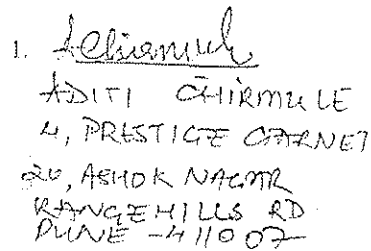 1. AChirmule
ADITI CHIRMULE
4, PRESTIGE GARNET
20, ASHOK NAGAR
RANGEHILLS RD
PUNE -411007